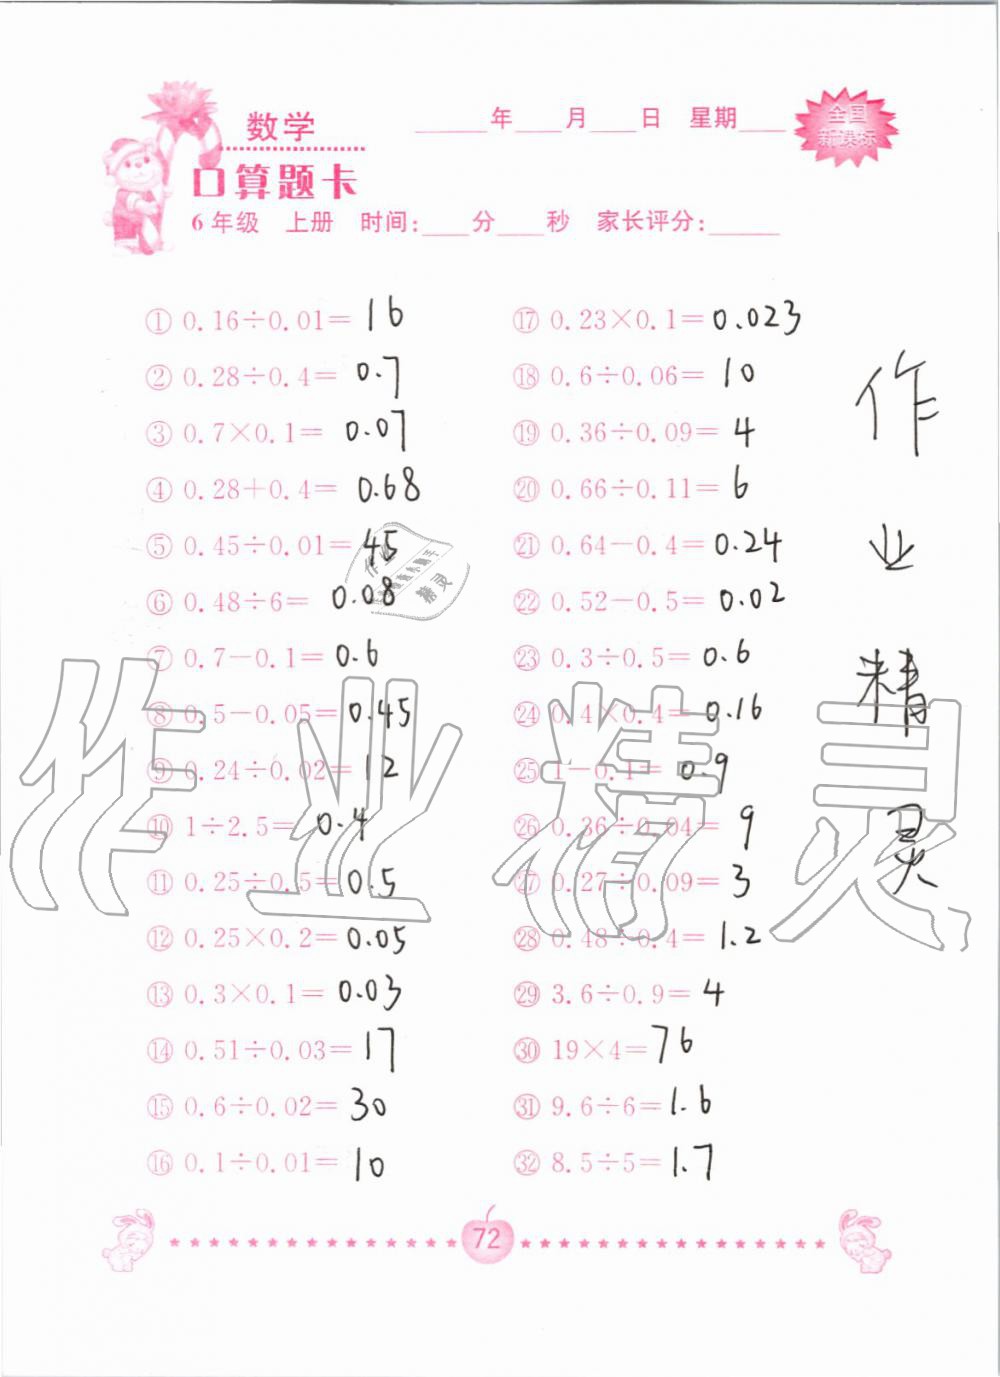 数学
______年____月____日 星期____
全国
新课标
口算题卡
6年级 上册 时间:____分____秒 家长评分:______
① 0.16÷0.01= 16
② 0.28÷0.4= 0.7
③ 0.7×0.1= 0.07
④ 0.28+0.4= 0.68
⑤ 0.45÷0.01= 45
⑥ 0.48÷6= 0.08
⑦ 0.7-0.1= 0.6
⑧ 0.5-0.05= 0.45
⑨ 0.24÷0.02= 12
⑩ 1÷2.5= 0.4
⑪ 0.25÷0.5= 0.5
⑫ 0.25×0.2= 0.05
⑬ 0.3×0.1= 0.03
⑭ 0.51÷0.03= 17
⑮ 0.6÷0.02= 30
⑯ 0.1÷0.01= 10
⑰ 0.23×0.1= 0.023
⑱ 0.6÷0.06= 10
⑲ 0.36÷0.09= 4
⑳ 0.66÷0.11= 6
㉑ 0.64-0.4= 0.24
㉒ 0.52-0.5= 0.02
㉓ 0.3÷0.5= 0.6
㉔ 0.4×0.4= 0.16
㉕ 1-0.1= 0.9
㉖ 0.36÷0.04= 9
㉗ 0.27÷0.09= 3
㉘ 0.48÷0.4= 1.2
㉙ 3.6÷0.9= 4
㉚ 19×4= 76
㉛ 9.6÷6= 1.6
㉜ 8.5÷5= 1.7
作
业
精
灵
作业精灵
72